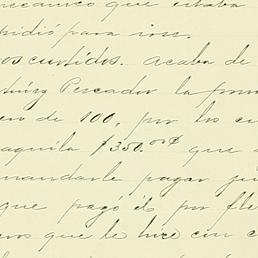 mecánico que estaba
pidió para irse.
os curtidos. Acaba de
Pescador la
ero de 100, por los cu
aquila $350.00 que
mandarle pagar
que pagó él por fle
ros que le hice con c